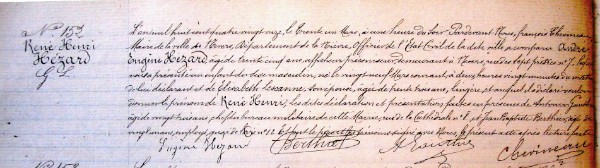 N° 152
René Henri
Hézard
L'an mil huit cent quatre vingt onze, le Trente un Mars, à une heure du soir Pardevant Nous, françois
Maire de la ville de Nevers, Département de la Nièvre, Officier de l'Etat Civil de la dite ville a comparu André
Eugène Hézard, âgé de trente cinq ans, demeurant à Nevers, rue des
nous a présenté un enfant du sexe masculin, né le vingt neuf Mars courant, à deux heures vingt minutes du
de lui déclarant et de Elisabeth son épouse, âgée de trente lingère, et auquel il a déclaré vouloir
donner les prénoms de René Henri. Les dites déclaration et présentation faites en présence de Antonin
âgé de vingt trois ans, chef du bureau militaire de cette Mairie, rue de la Cathédrale n° 1, et Jean Baptiste Berthier, âgé de
vingt neuf ans, employé, n° 12 Et ont le père et les témoins signé avec Nous, le présent acte après lecture faite
Eugène Hézard Berthier
N° 153